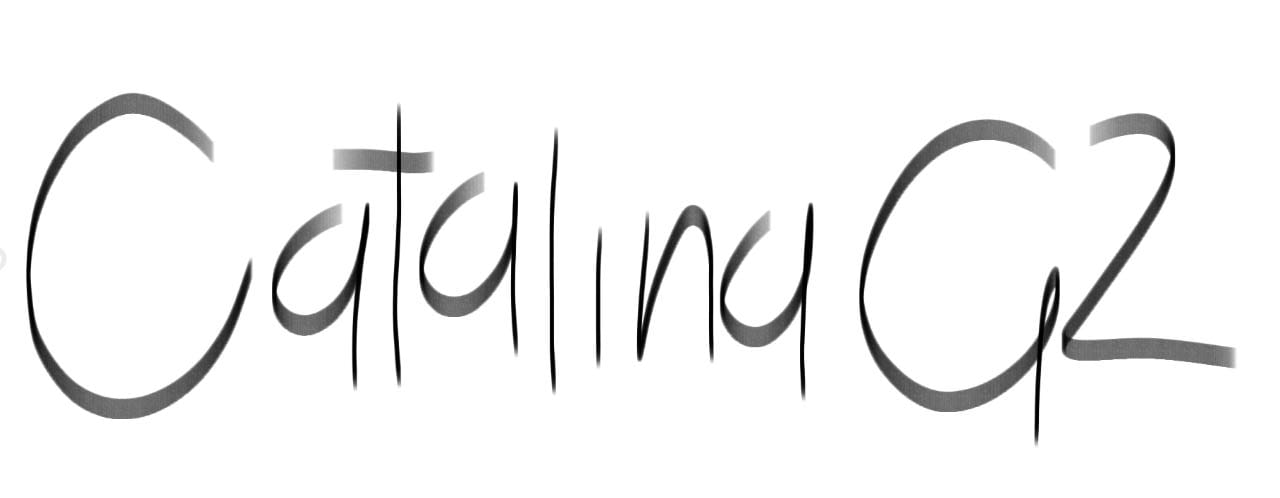 Catalina G2